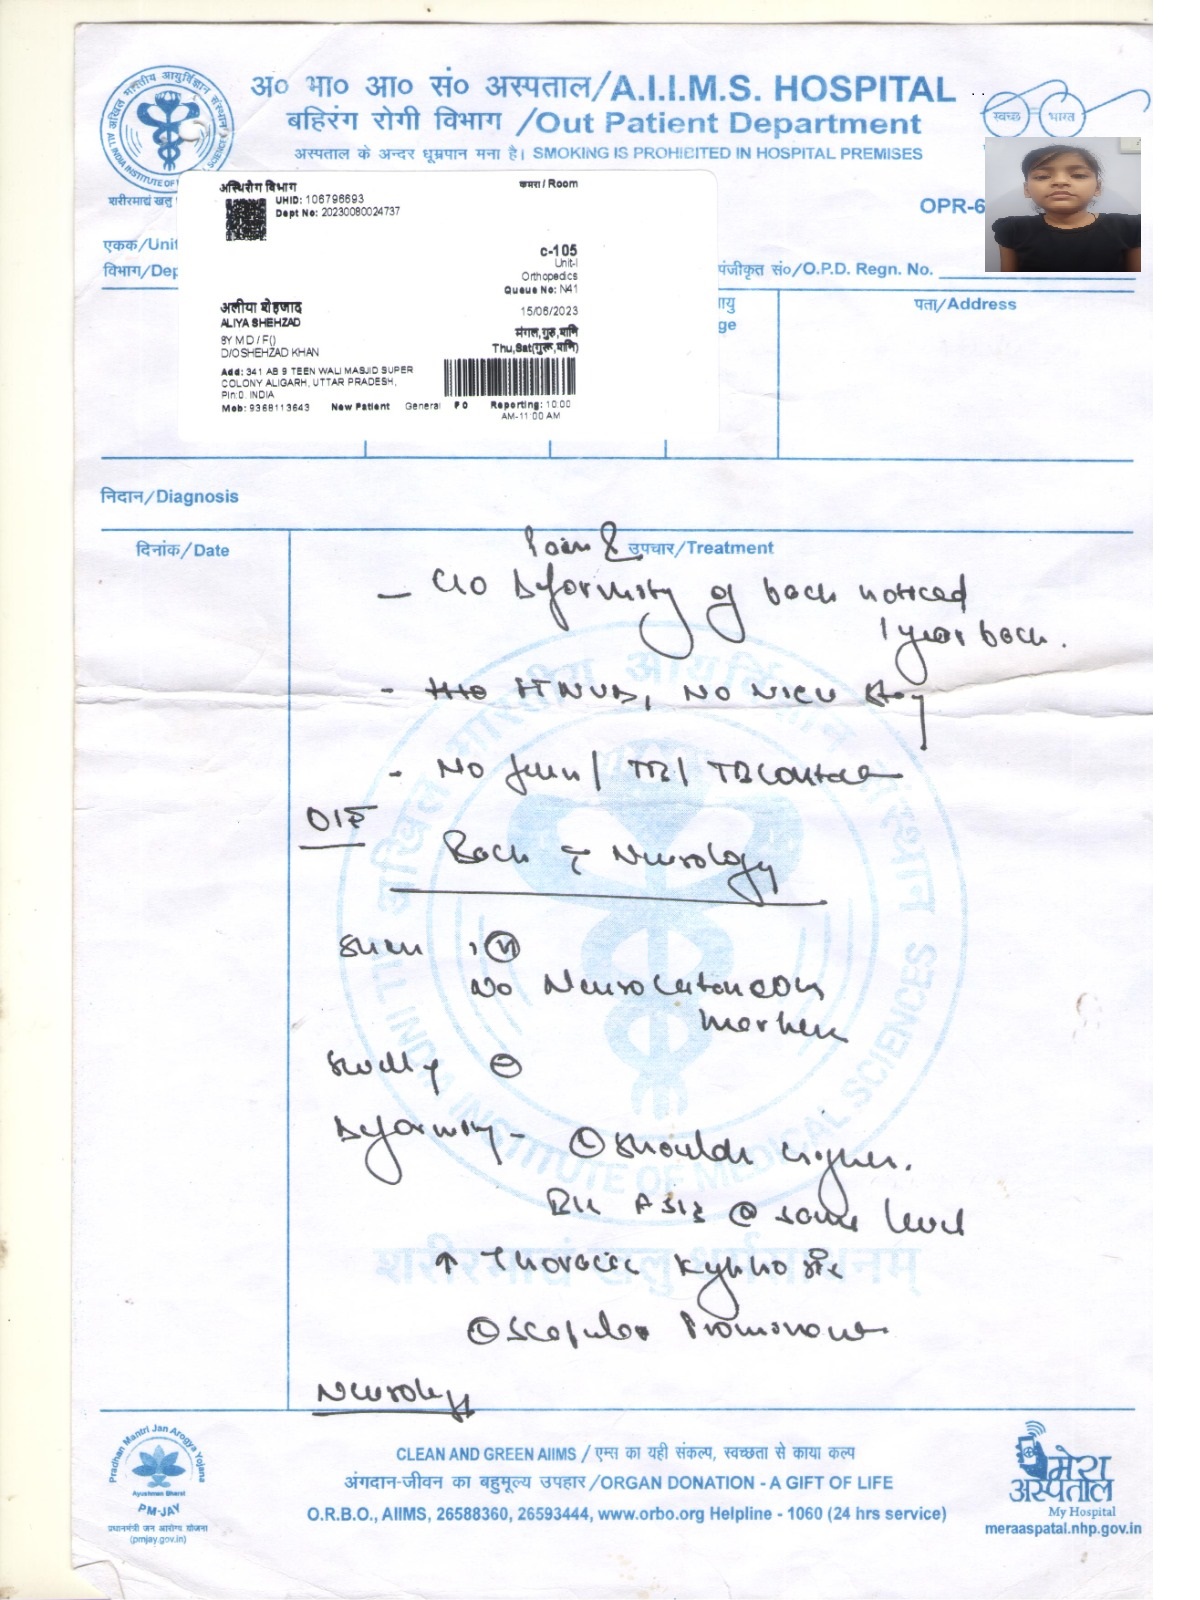 अ० भा० आ० सं० अस्पताल/A.I.I.M.S. HOSPITAL
बहिरंग रोगी विभाग /Out Patient Department
अस्पताल के अन्दर धूम्रपान मना है। SMOKING IS PROHIBITED IN HOSPITAL PREMISES
स्वच्छ भारत
शरीरमाद्यं खलु
OPR-6
एकक/Unit
विभाग/Dep
पंजीकृत सं०/O.P.D. Regn. No.
पता/Address
अस्थिरोग विभाग
कमरा / Room
UHID: 106796693
Dept No: 20230080024737
c-105
Unit-I
Orthopedics
Queue No: N41
अलीया शेहजाद
15/06/2023
ALIYA SHEHZAD
मंगल,गुरु,शनि
8Y M D / F()
Thu,Sat(गुरू,शनि)
D/O SHEHZAD KHAN
Add: 341 AB 9 TEEN WALI MASJID SUPER
COLONY ALIGARH, UTTAR PRADESH,
Pin:0, INDIA
Mob: 9368113643 New Patient General ₹ 0 Reporting: 10:00
AM-11:00 AM
निदान/Diagnosis
दिनांक/Date
उपचार/Treatment
Pain &
- C/O Deformity of back noticed
1 year back.
- FTNVD, NO NICU stay
- No fever / TB / TB contact
O/E
Back & Neurology
Skin : N
No Neurocutaneous
markers
Swelling ⊖
Deformity - L shoulder higher.
B/L ASIS @ same level
↑ Thoracic kyphosis
scapular Prominence
Neurology
CLEAN AND GREEN AIIMS / एम्स का यही संकल्प, स्वच्छता से काया कल्प
अंगदान-जीवन का बहुमूल्य उपहार /ORGAN DONATION - A GIFT OF LIFE
O.R.B.O., AIIMS, 26588360, 26593444, www.orbo.org Helpline - 1060 (24 hrs service)
Pradhan Mantri Jan Arogya Yojana
Ayushman Bharat
PM-JAY
प्रधानमंत्री जन आरोग्य योजना
(pmjay.gov.in)
मेरा
अस्पताल
My Hospital
meraaspatal.nhp.gov.in